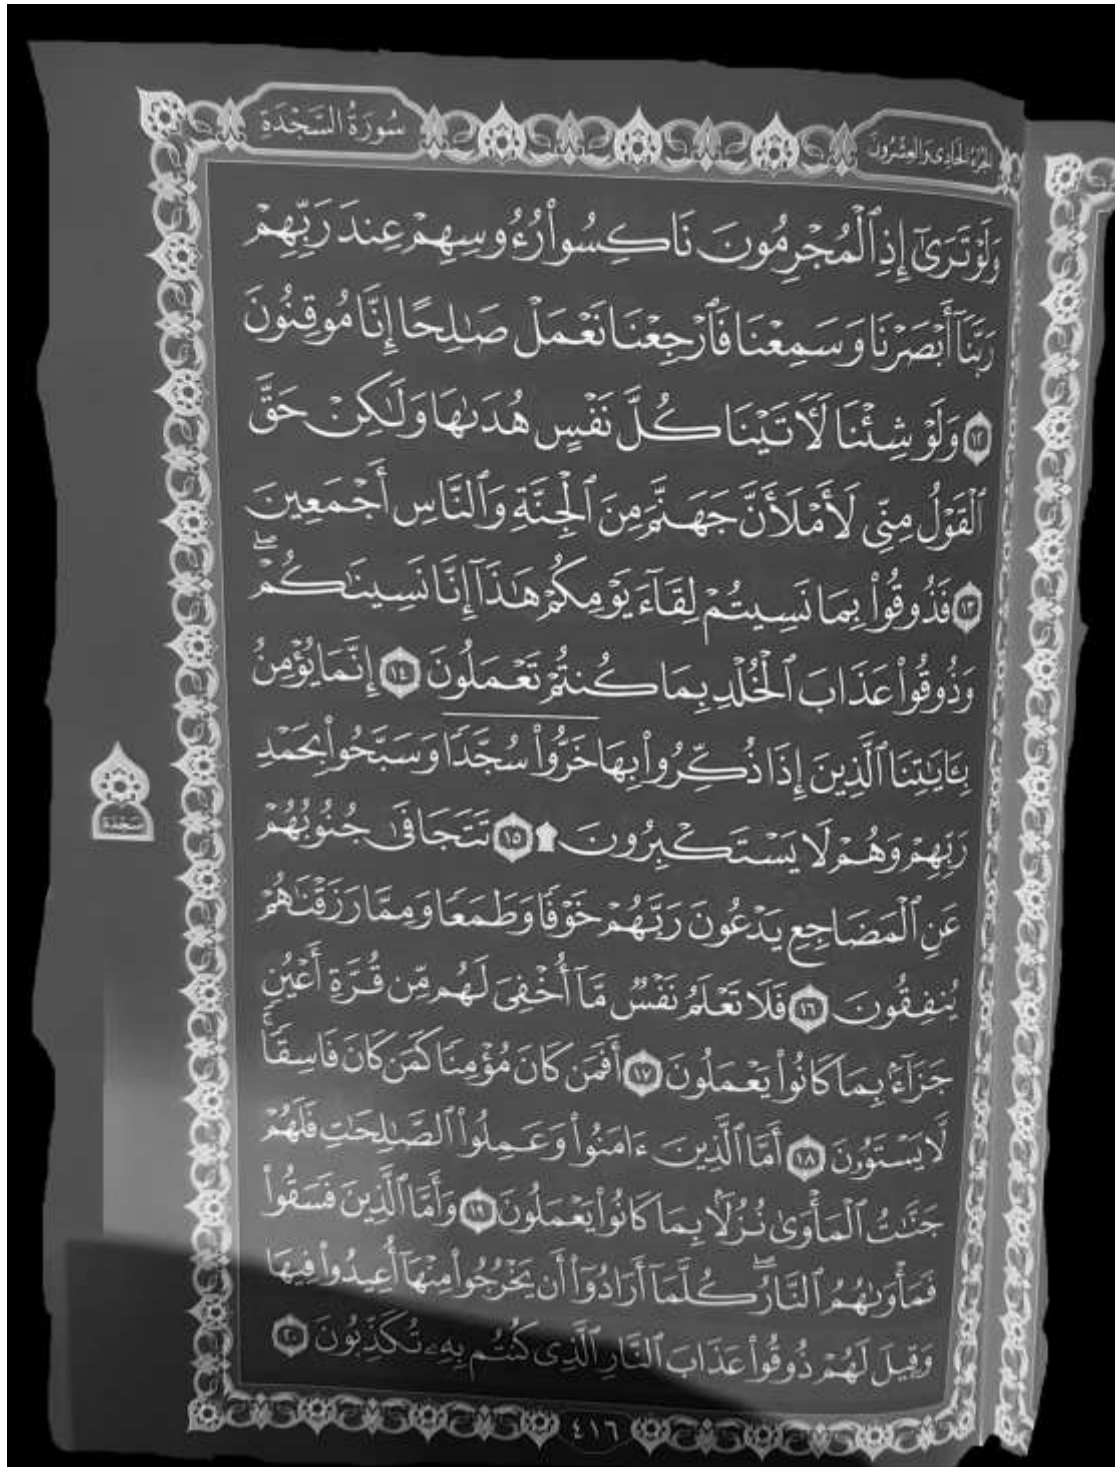 الجزء الحادي والعشرون
سُورَةُ السَّجْدَةِ
وَلَوْ تَرَىٰٓ إِذِ ٱلْمُجْرِمُونَ نَاكِسُوا۟ رُءُوسِهِمْ عِندَ رَبِّهِمْ
رَبَّنَآ أَبْصَرْنَا وَسَمِعْنَا فَٱرْجِعْنَا نَعْمَلْ صَـٰلِحًا إِنَّا مُوقِنُونَ
١٢ وَلَوْ شِئْنَا لَـَٔاتَيْنَا كُلَّ نَفْسٍ هُدَىٰهَا وَلَـٰكِنْ حَقَّ
ٱلْقَوْلُ مِنِّى لَأَمْلَأَنَّ جَهَنَّمَ مِنَ ٱلْجِنَّةِ وَٱلنَّاسِ أَجْمَعِينَ
١٣ فَذُوقُوا۟ بِمَا نَسِيتُمْ لِقَآءَ يَوْمِكُمْ هَـٰذَآ إِنَّا نَسِينَـٰكُمْ ۖ
وَذُوقُوا۟ عَذَابَ ٱلْخُلْدِ بِمَا كُنتُمْ تَعْمَلُونَ ١٤ إِنَّمَا يُؤْمِنُ
بِـَٔايَـٰتِنَا ٱلَّذِينَ إِذَا ذُكِّرُوا۟ بِهَا خَرُّوا۟ سُجَّدًا وَسَبَّحُوا۟ بِحَمْدِ
سَجْدَة
رَبِّهِمْ وَهُمْ لَا يَسْتَكْبِرُونَ ۩ ١٥ تَتَجَافَىٰ جُنُوبُهُمْ
عَنِ ٱلْمَضَاجِعِ يَدْعُونَ رَبَّهُمْ خَوْفًا وَطَمَعًا وَمِمَّا رَزَقْنَـٰهُمْ
يُنفِقُونَ ١٦ فَلَا تَعْلَمُ نَفْسٌ مَّآ أُخْفِىَ لَهُم مِّن قُرَّةِ أَعْيُنٍ
جَزَآءًۢ بِمَا كَانُوا۟ يَعْمَلُونَ ١٧ أَفَمَن كَانَ مُؤْمِنًا كَمَن كَانَ فَاسِقًا ۚ
لَّا يَسْتَوُۥنَ ١٨ أَمَّا ٱلَّذِينَ ءَامَنُوا۟ وَعَمِلُوا۟ ٱلصَّـٰلِحَـٰتِ فَلَهُمْ
جَنَّـٰتُ ٱلْمَأْوَىٰ نُزُلًۢا بِمَا كَانُوا۟ يَعْمَلُونَ ١٩ وَأَمَّا ٱلَّذِينَ فَسَقُوا۟
فَمَأْوَىٰهُمُ ٱلنَّارُ ۖ كُلَّمَآ أَرَادُوٓا۟ أَن يَخْرُجُوا۟ مِنْهَآ أُعِيدُوا۟ فِيهَا
وَقِيلَ لَهُمْ ذُوقُوا۟ عَذَابَ ٱلنَّارِ ٱلَّذِى كُنتُم بِهِۦ تُكَذِّبُونَ ٢٠
٤١٦